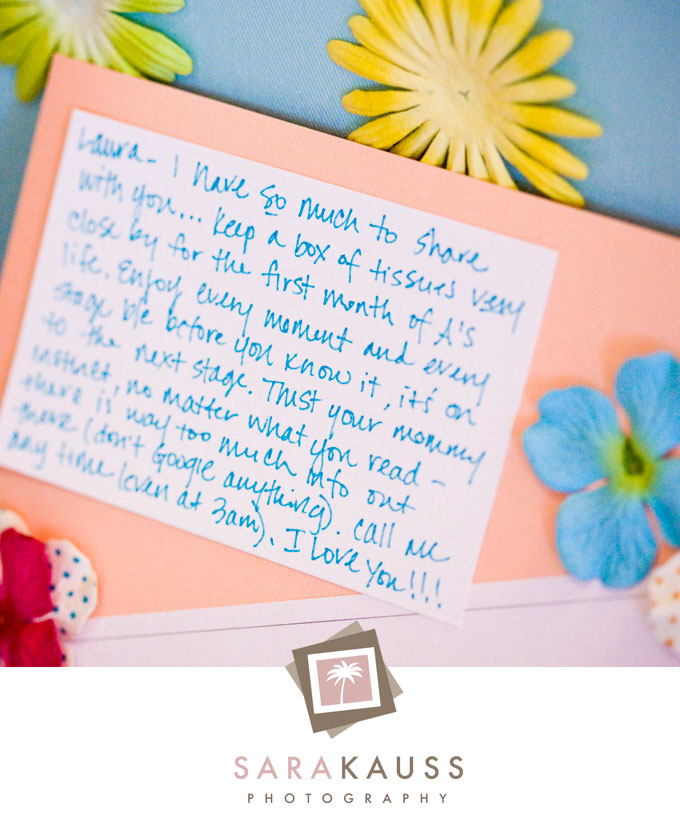 Laura - I have so much to share
with you... keep a box of tissues very
close by for the first month of A's
life. Enjoy every moment and every
stage b/c before you know it, it's on
to the next stage. Trust your mommy
instinct, no matter what you read -
there is way too much info out
there (don't Google anything). Call me
any time (even at 3am). I love you!!!
SARAKAUSS
PHOTOGRAPHY